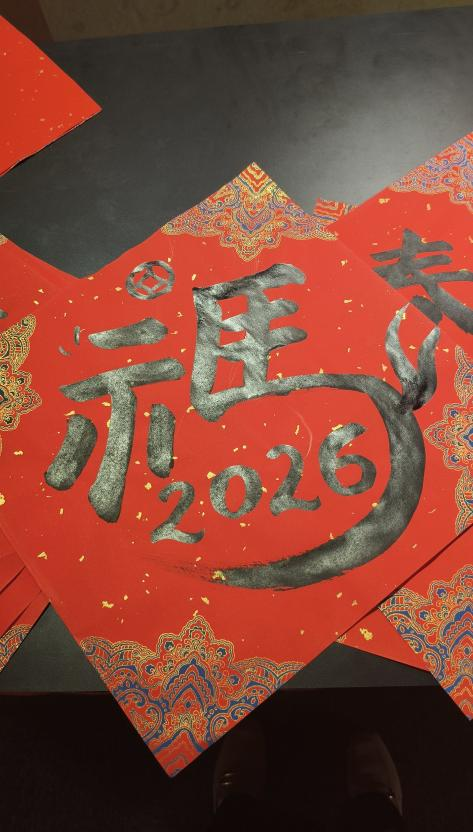 禡
2026
春